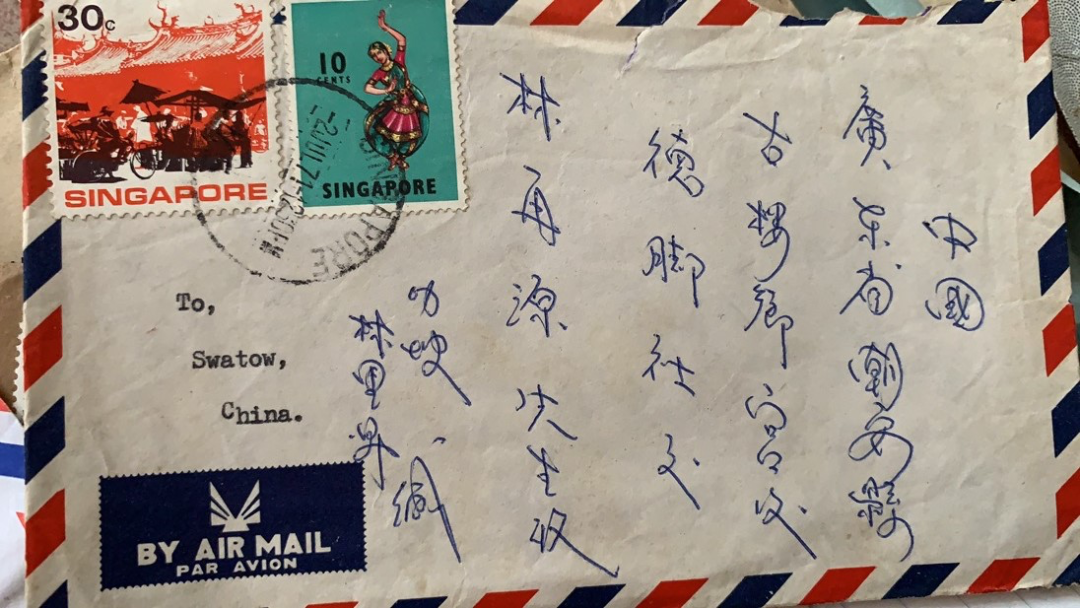 30c
SINGAPORE
10
CENTS
SINGAPORE
SINGAPORE
-2JUL71
中國
廣东省潮安縣
古楼鄉宫口交
德脚社交
林再源先生收
叻坡 緘
To,
Swatow,
China.
BY AIR MAIL
PAR AVION